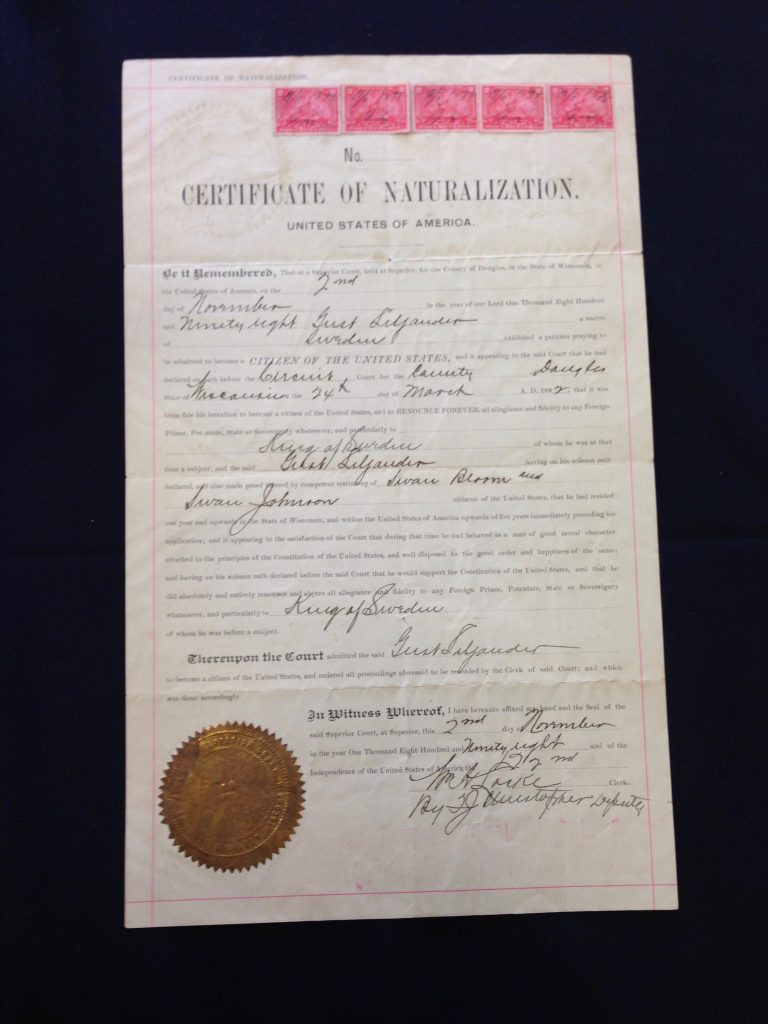 CERTIFICATE OF NATURALIZATION.
No.
CERTIFICATE OF NATURALIZATION.
UNITED STATES OF AMERICA.
Be it Remembered, That at a Superior Court, held at Superior, for the County of Douglas, in the State of Wisconsin, in
the United States of America, on the 2nd
day of November in the year of our Lord One Thousand Eight Hundred
and Ninety eight Gust Siljander a native
of Sweden exhibited a petition praying to
be admitted to become a CITIZEN OF THE UNITED STATES, and it appearing to the said Court that he had
declared on oath before the Circuit Court for the County Douglas
State of Wisconsin on the 24th day of March A. D. 1892, that it was
bona fide his intention to become a citizen of the United States, and to RENOUNCE FOREVER, all allegiance and fidelity to any Foreign
Prince, Potentate, State or Sovereignty whatsoever, and particularly to
King of Sweden of whom he was at that
time a subject; and the said Gust Siljander having on his solemn oath
declared, and also made proof thereof by competent testimony of Swan Bloom and
Swan Johnson citizens of the United States, that he had resided
one year and upwards in the State of Wisconsin, and within the United States of America upwards of five years immediately preceding his
application; and it appearing to the satisfaction of the Court that during that time he had behaved as a man of good moral character
attached to the principles of the Constitution of the United States, and well disposed to the good order and happiness of the same;
and having on his solemn oath declared before the said Court that he would support the Constitution of the United States, and that he
did absolutely and entirely renounce and abjure all allegiance and fidelity to any Foreign Prince, Potentate, State or Sovereignty
whatsoever, and particularly to King of Sweden
of whom he was before a subject.
Thereupon the Court admitted the said Gust Siljander
to become a citizen of the United States, and ordered all proceedings aforesaid to be recorded by the Clerk of said Court; and which
was done accordingly.
In Witness Whereof, I have hereunto affixed my hand and the Seal of the
said Superior Court, at Superior, this 2nd day November
in the year One Thousand Eight Hundred and Ninety eight and of the
Independence of the United States of America the 122nd
Wm H Locke Clerk.
By F J Christopher Deputy